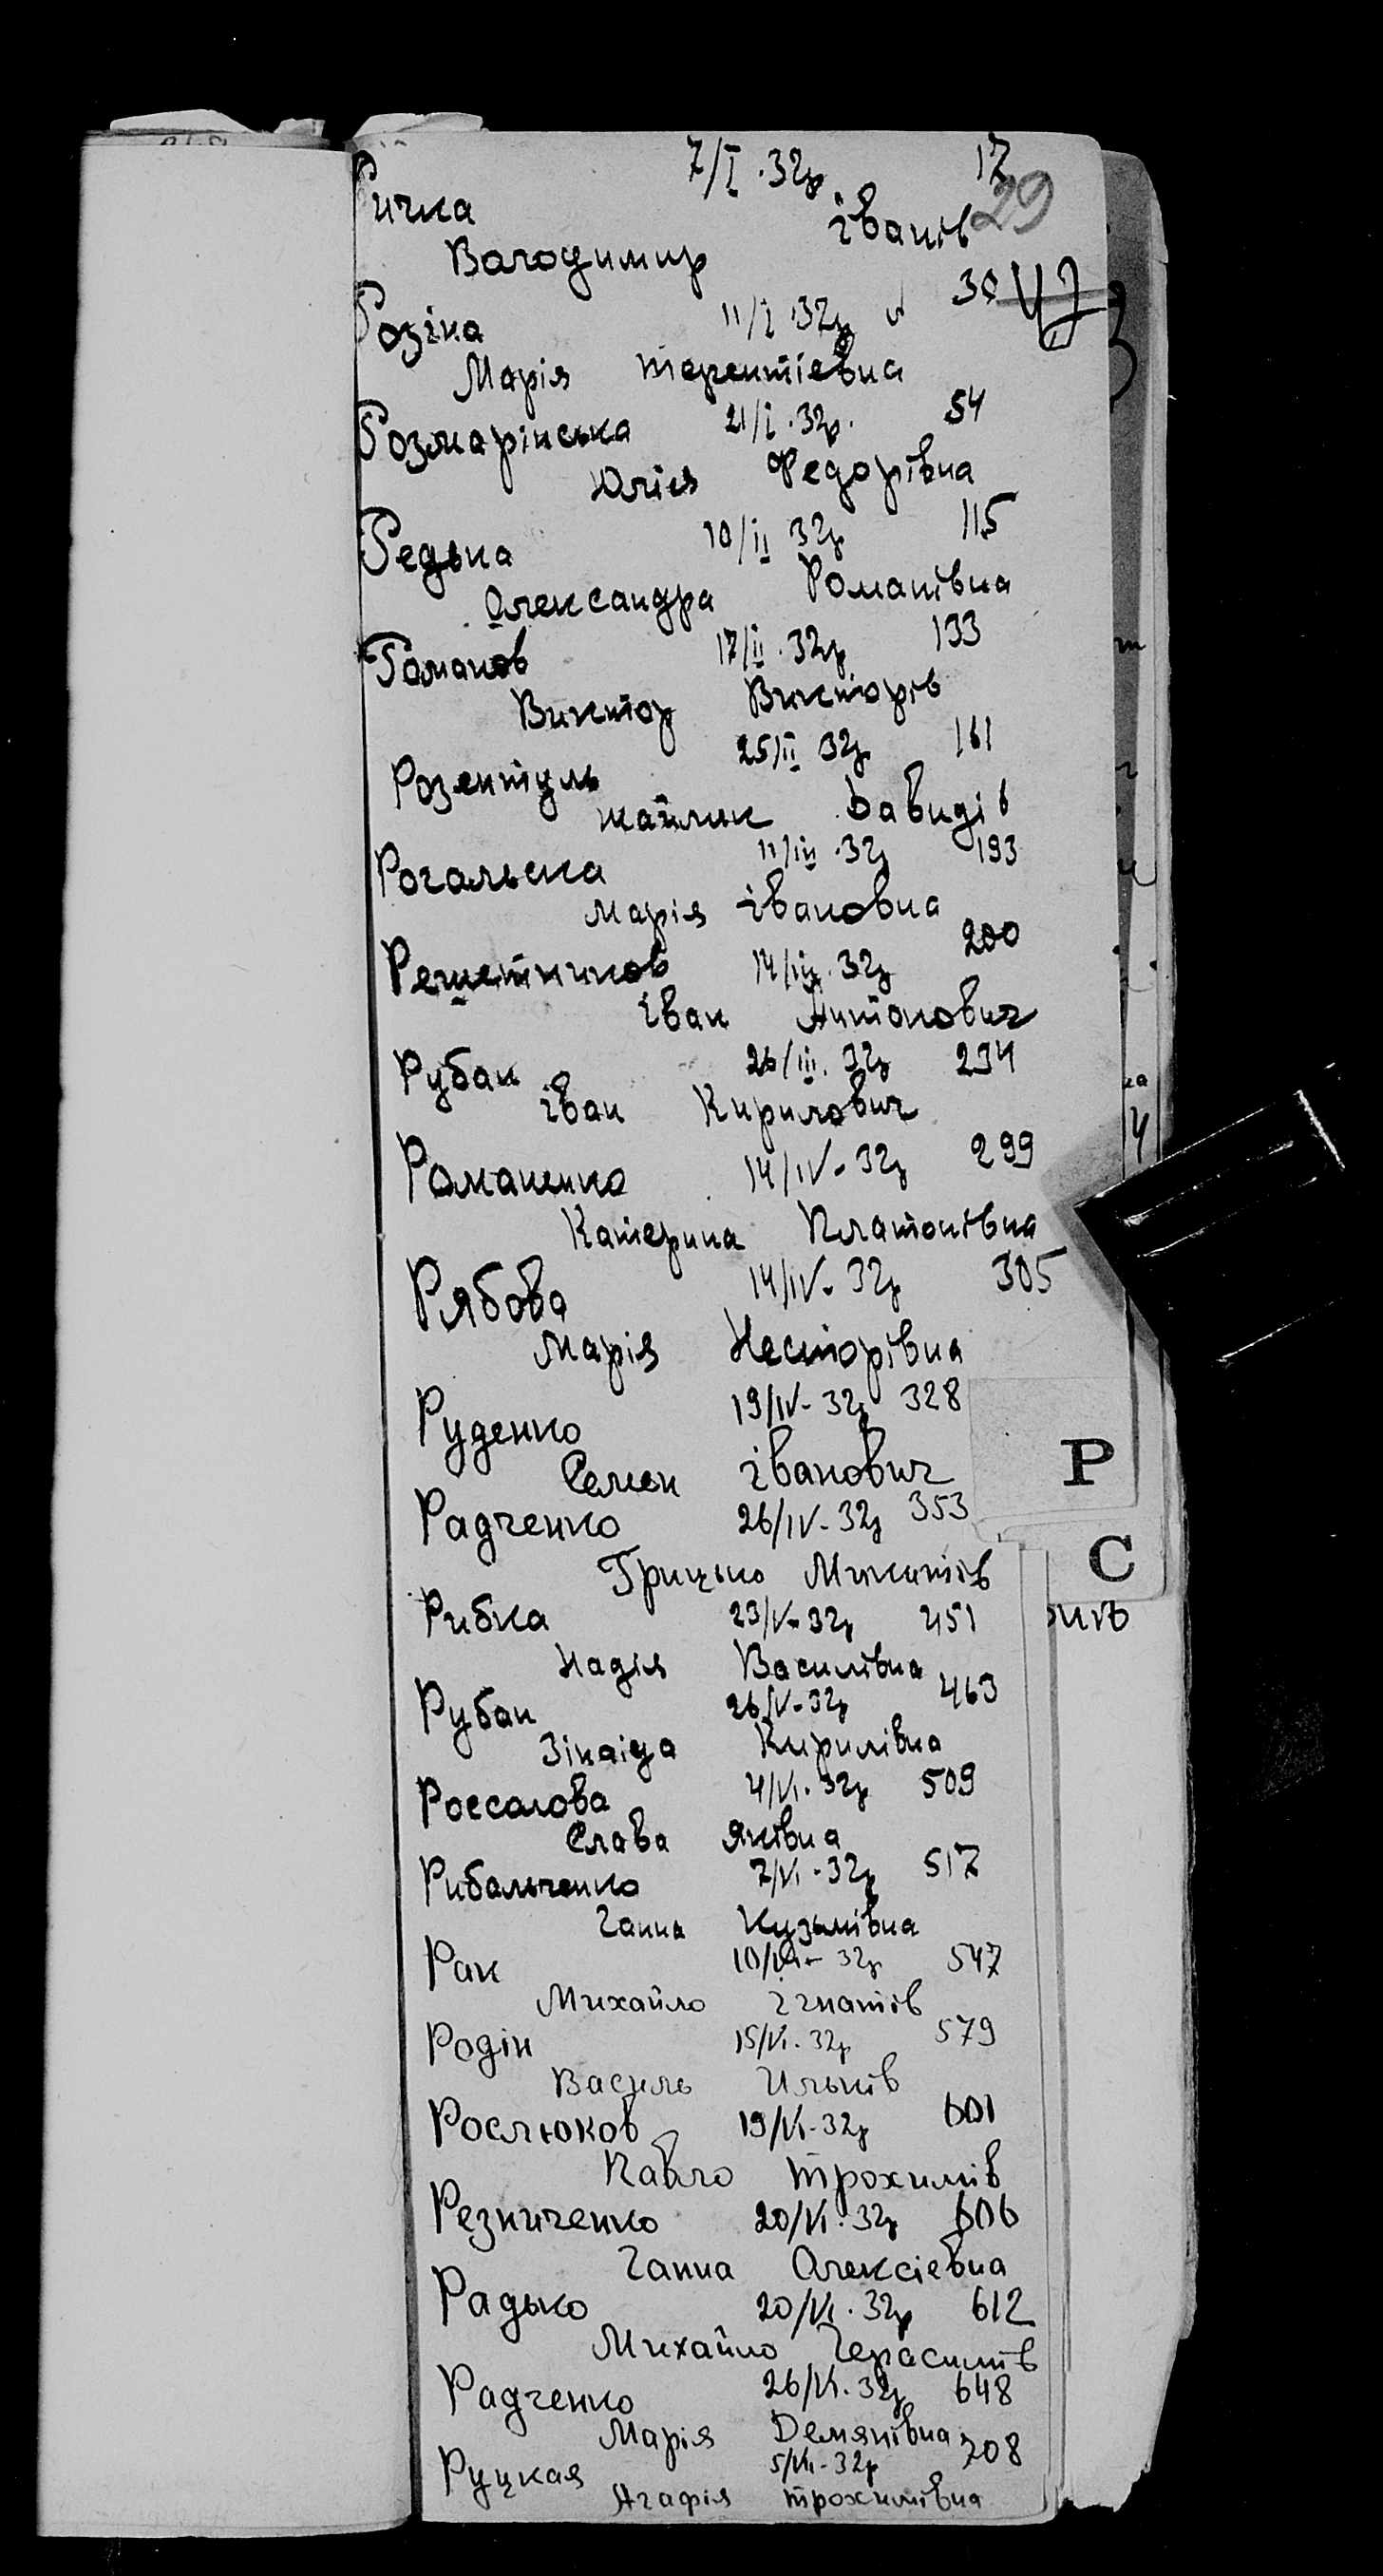 7/I.32р 17
Ричка
29
Іванів
Володимир
30
Розіна 11/I.32р
Марія Терентієвна
Розмарінська 21/I.32р. 54
Юлія Федорівна
Редька 10/II 32р 115
Олександра Романівна
Романов 17/II.32р 133
Виктор Викторів
Розентуль 25/II 32р 161
Давидів
Рогальска 11/III.32р 193
Марія Івановна
Решетников 14/III.32р 200
Іван Антонович
Рубан 26/III.32р 234
Іван Кирилович
Романенко 14/IV-32р 299
Катерина Платонівна
Рябова 14/IV-32р 305
Марія Несторівна
Руденко 19/IV-32р 328
Семен Іванович
Радченко 26/IV-32р 353
Грицько Микитів
Рибка 23/V-32р 451
Надія Василівна
Рубан 26/V-32р 463
Зінаіда Кирилівна
Россолова 4/VI.32р 509
Слава Яківна
Рибальченко 7/VI-32р 517
Ганна Кузьмівна
Рак 10/VI-32р 547
Михайло Ігнатів
Родін 15/VI.32р 579
Василь Ильків
Рослюков 19/VI-32р 601
Павло Трохимів
Резниченко 20/VI.32р 606
Ганна Олексієвна
Радько 20/VI.32р 612
Михайло Герасимів
Радченко 26/VI.32р 648
Марія Демянівна
Руцкая 5/VII-32р 708
Агафія Трохимівна
Р
С